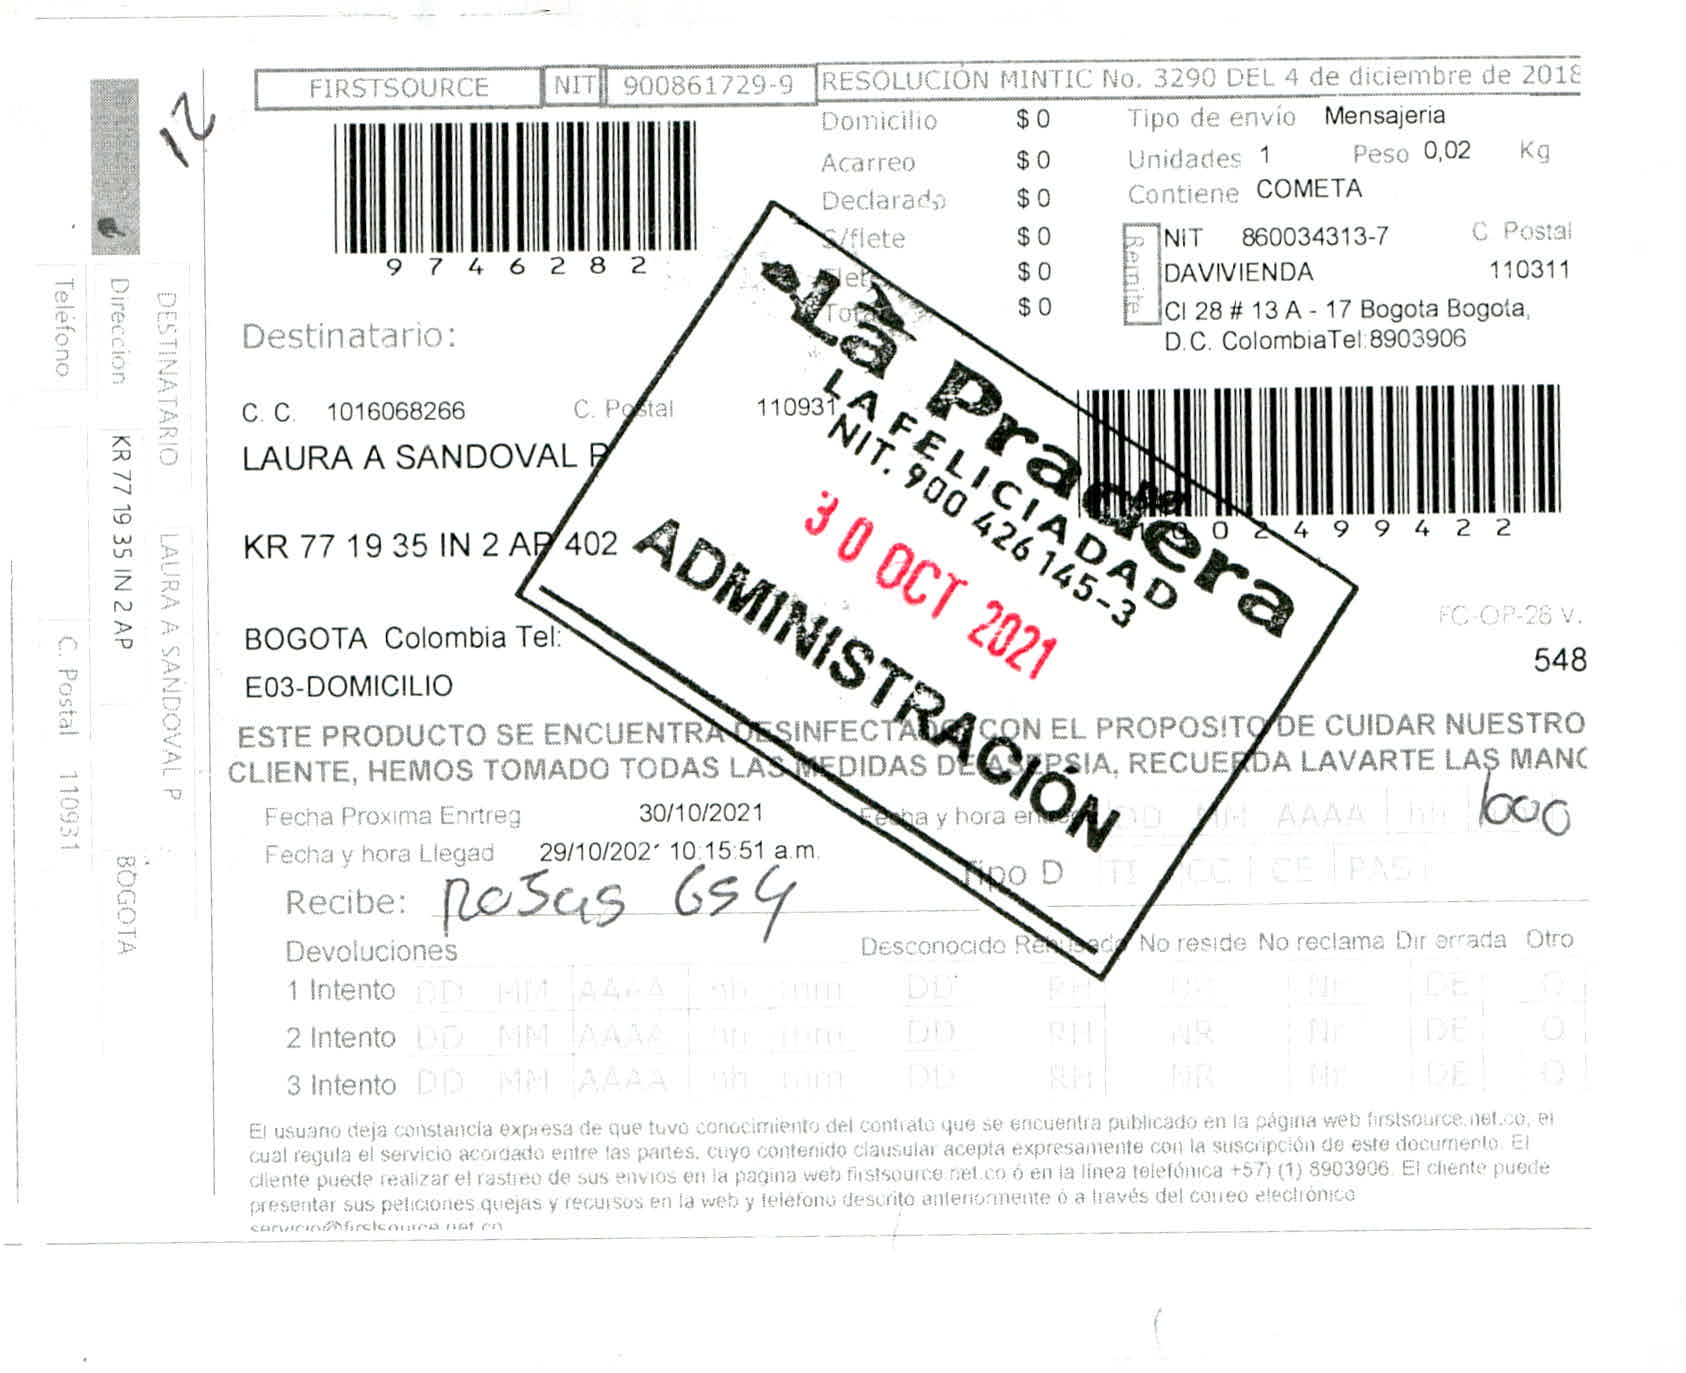 FIRSTSOURCE NIT 900861729-9 RESOLUCIÓN MINTIC No. 3290 DEL 4 de diciembre de 2018
12
9746282
Domicilio $ 0
Acarreo $ 0
Declarado $ 0
S/flete $ 0
Flete $ 0
Total $ 0
Tipo de envío Mensajeria
Unidades 1 Peso 0,02 Kg
Contiene COMETA
Remite
NIT 860034313-7 C Postal
DAVIVIENDA 110311
Cl 28 # 13 A - 17 Bogota Bogota,
D.C. ColombiaTel:8903906
Destinatario:
C. C. 1016068266 C. Postal 110931
LAURA A SANDOVAL P
KR 77 19 35 IN 2 AP 402
BOGOTA Colombia Tel:
E03-DOMICILIO
02499422
FC-OP-28 V.
548
La Pradera
LA FELICIADAD
NIT. 900 426 145-3
30 OCT 2021
ADMINISTRACIÓN
ESTE PRODUCTO SE ENCUENTRA DESINFECTADO CON EL PROPOSITO DE CUIDAR NUESTRO
CLIENTE, HEMOS TOMADO TODAS LAS MEDIDAS DE ASEPSIA, RECUERDA LAVARTE LAS MANO
Fecha Proxima Enrtreg 30/10/2021 Fecha y hora entrega DD MM AAAA hh
1600
Fecha y hora Llegad 29/10/2021 10:15:51 a.m.
Tipo D TI CC CE PAS
Recibe: Rosas GS4
Devoluciones Desconocido Rehusado No reside No reclama Dir errada Otro
1 Intento DD MM AAAA hh mm DD RH NR Nr DE O
2 Intento DD MM AAAA hh mm DD RH NR Nr DE O
3 Intento DD MM AAAA hh mm DD RH NR Nr DE O
El usuario deja constancia expresa de que tuvo conocimiento del contrato que se encuentra publicado en la página web firstsource.net.co, el
cual regula el servicio acordado entre las partes, cuyo contenido clausular acepta expresamente con la suscripción de este documento. El
cliente puede realizar el rastreo de sus envios en la pagina web firstsource.net.co ó en la línea telefónica +57) (1) 8903906. El cliente puede
presentar sus peticiones quejas y recursos en la web y teléfono descrito anteriormente ó a través del correo electrónico
servicio@firstsource.net.co
DESTINATARIO LAURA A SANDOVAL P
Dirección KR 77 19 35 IN 2 AP BOGOTA
Teléfono C. Postal 110931